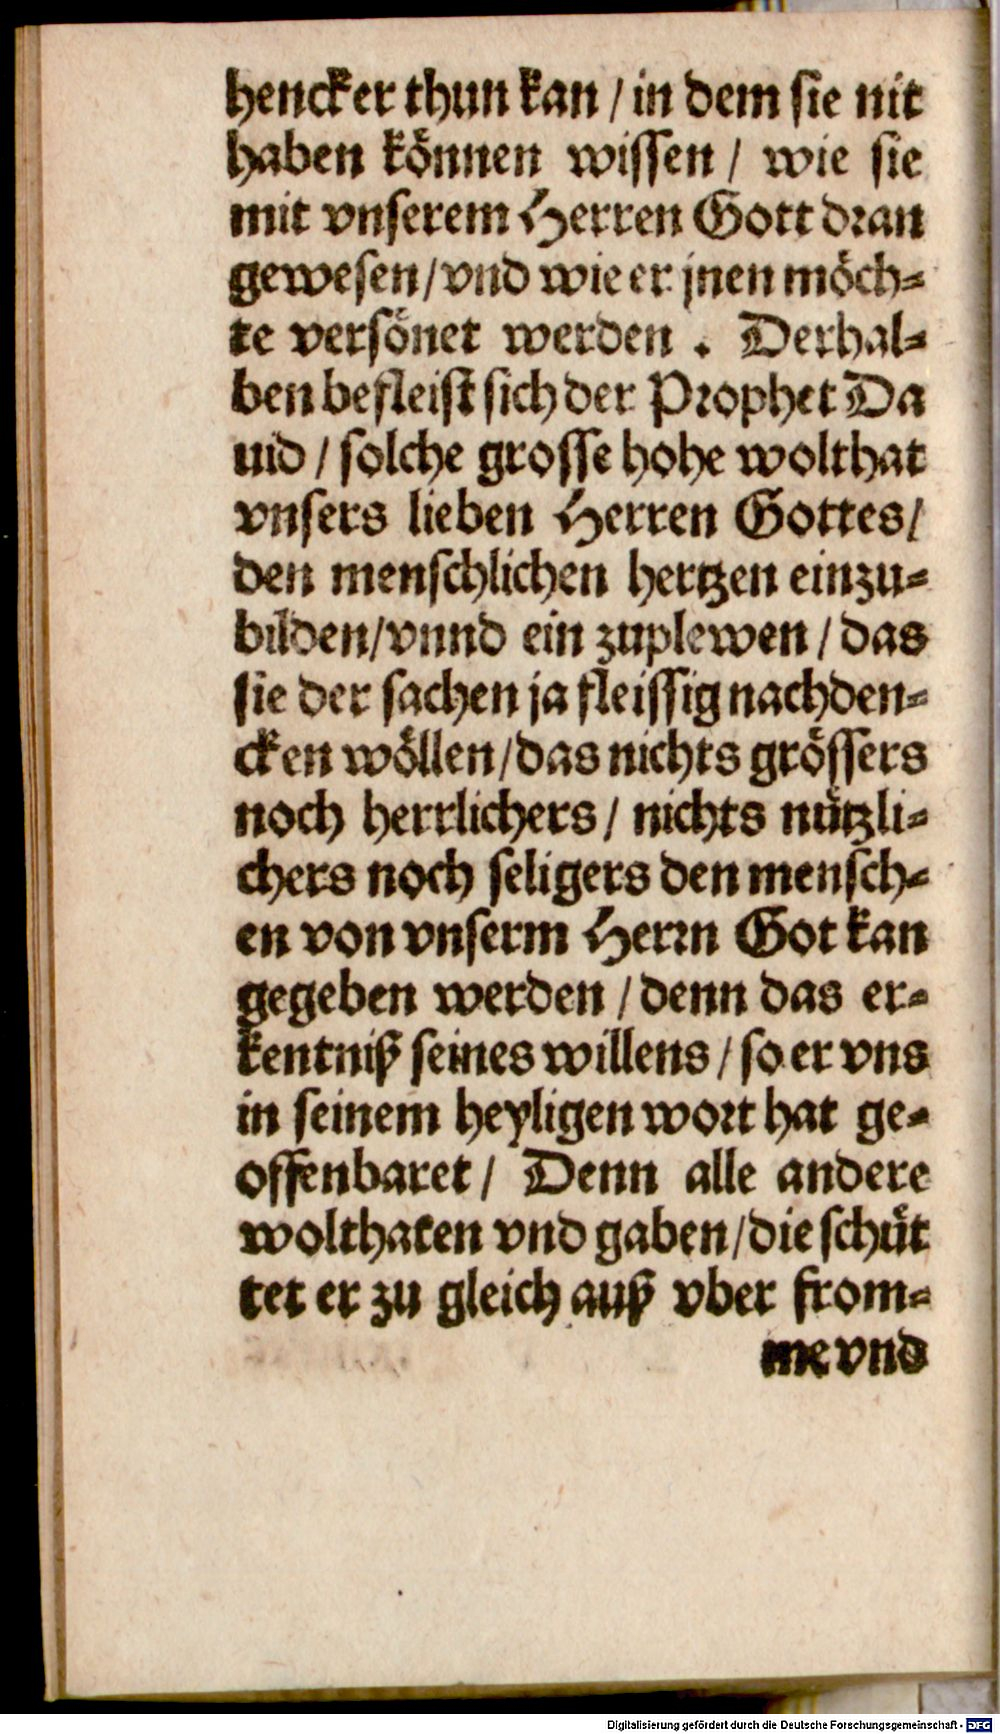 hencker thun kan / in dem sie nit
haben können wissen / wie sie
mit vnserem Herren Gott dran
gewesen / vnd wie er jnen möch-
te versönet werden . Derhal-
ben befleist sich der Prophet Da
uid / solche grosse hohe wolthat
vnsers lieben Herren Gottes /
den menschlichen hertzen einzu-
bilden / vnnd ein zuplewen / das
sie der sachen ja fleissig nachden-
cken wöllen / das nichts grössers
noch herrlichers / nichts nützli-
chers noch seligers den mensch-
en von vnserm Herrn Got kan
gegeben werden / denn das er-
kentniß seines willens / so er vns
in seinem heyligen wort hat ge-
offenbaret / Denn alle andere
wolthaten vnd gaben / die schüt
tet er zu gleich auß vber from-
me vnd
Digitalisierung gefördert durch die Deutsche Forschungsgemeinschaft - DFG